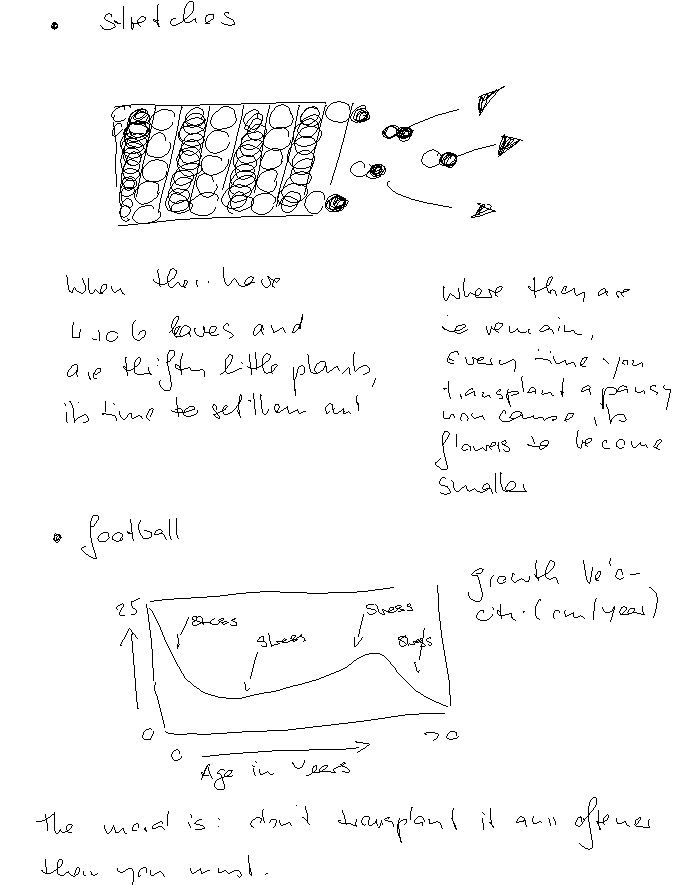 • stretches
When they have
4 to 6 leaves and
are thrifty little plants,
it's time to set them out
where they are
to remain,
Every time you
transplant a pansy
you cause its
flowers to become
smaller
• football
growth velo-
city (cm/year)
25
Stress
Stress
Stress
Stress
0
0
20
Age in Years
The moral is: don't transplant it any oftener
than you must.